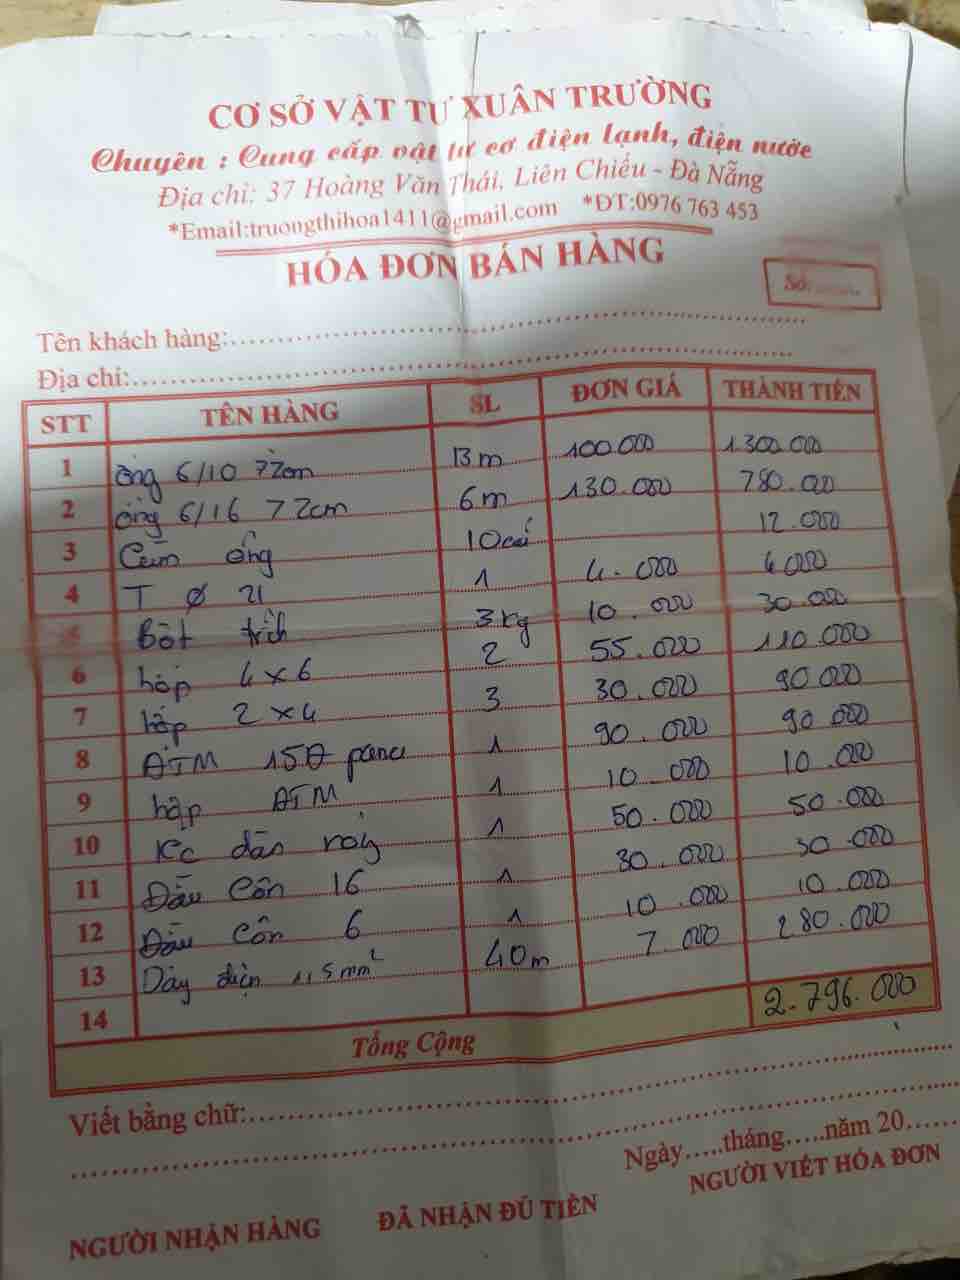 CƠ SỞ VẬT TƯ XUÂN TRƯỜNG
Chuyên : Cung cấp vật tư cơ điện lạnh, điện nước
Địa chỉ: 37 Hoàng Văn Thái, Liên Chiểu - Đà Nẵng
*Email:truongthihoa1411@gmail.com *ĐT:0976 763 453
HÓA ĐƠN BÁN HÀNG
Số:
Tên khách hàng:
Địa chỉ:
STT TÊN HÀNG SL ĐƠN GIÁ THÀNH TIỀN
1 ống 6/10 72cm 13m 100.000 1.300.000
2 ống 6/16 72cm 6m 130.000 780.000
3 Cùm ống 10cái 12.000
4 T Ø 21 1 4.000 4000
5 Bột trích 3kg 10.000 30.000
6 hộp 4x6 2 55.000 110.000
7 hộp 2x4 3 30.000 90.000
8 ATM 15A pana 1 90.000 90.000
9 hộp ATM 1 10.000 10.000
10 KC dàn 1 50.000 50.000
11 Đầu Côn 16 1 30.000 30.000
12 Đầu Côn 6 1 10.000 10.000
13 Dây điện 1,5mm² 40m 7.000 280.000
14
Tổng Cộng 2.796.000
Viết bằng chữ:
Ngày.....tháng.....năm 20......
NGƯỜI NHẬN HÀNG ĐÃ NHẬN ĐỦ TIỀN NGƯỜI VIẾT HÓA ĐƠN